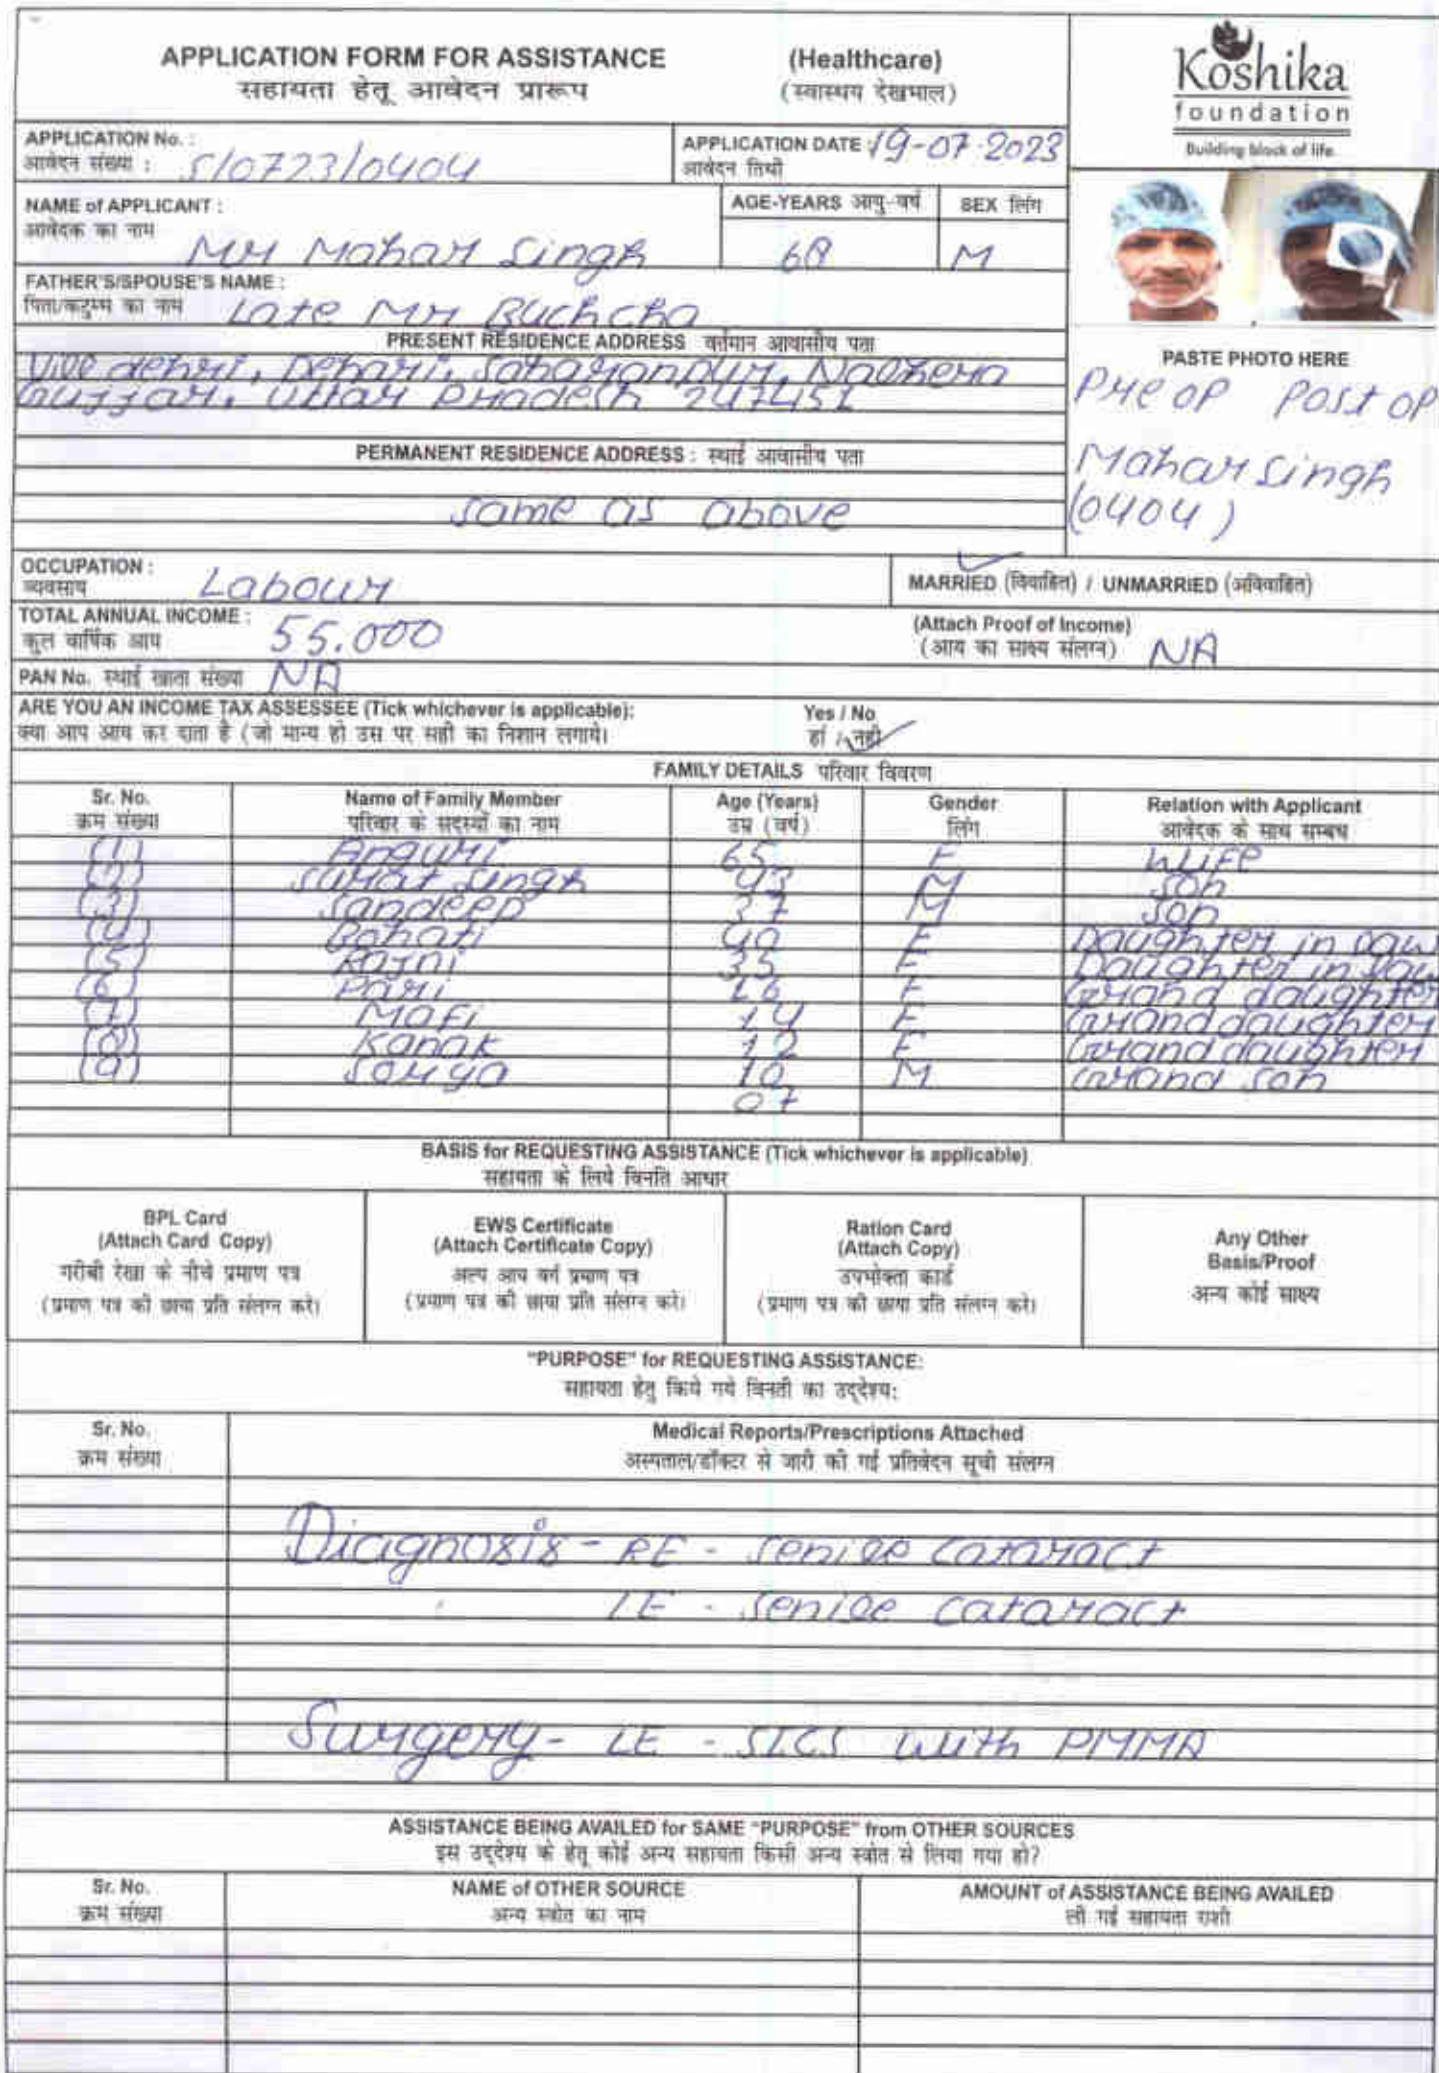 APPLICATION FORM FOR ASSISTANCE (Healthcare)
सहायता हेतू आवेदन प्रारूप (स्वास्थय देखभाल)
Koshika
foundation
Building block of life.
APPLICATION No. :
आवेदन संख्या : S/0723/0404
APPLICATION DATE : 19-07-2023
आवेदन तिथी
NAME of APPLICANT :
आवेदक का नाम Mr Mahar Singh
AGE-YEARS आयु-वर्ष 68
SEX लिंग M
FATHER'S/SPOUSE'S NAME :
पिता/कटुम्म का नाम Late Mr Buchcha
PRESENT RESIDENCE ADDRESS वर्तमान आवासीय पता
Vill dehri, Dehari, Saharanpur, Nalhera
Gujjar, Uttar Pradesh 247451
PASTE PHOTO HERE
Pre op Post op
Mahar Singh
(0404)
PERMANENT RESIDENCE ADDRESS : स्थाई आवासीय पता
Same as above
OCCUPATION :
व्यवसाय Labour
MARRIED (विवाहित) / UNMARRIED (अविवाहित)
TOTAL ANNUAL INCOME :
कुल वार्षिक आय 55.000
(Attach Proof of Income)
(आय का साक्ष्य संलग्न) NA
PAN No. स्थाई खाता संख्या NA
ARE YOU AN INCOME TAX ASSESSEE (Tick whichever is applicable): Yes / No
क्या आप आय कर दाता है (जो मान्य हो उस पर सही का निशान लगाये। हां / नही
FAMILY DETAILS परिवार विवरण
Sr. No. Name of Family Member Age (Years) Gender Relation with Applicant
क्रम संख्या परिवार के सदस्यों का नाम उम्र (वर्ष) लिंग आवेदक के साथ सम्बध
(1) Anguri 65 F Wife
(2) Surat Singh 43 M Son
(3) Sandeep 37 M Son
(4) Bohati 40 F Daughter in law
(5) Rajni 35 F Daughter in law
(6) Pari 16 F Grand daughter
(7) Mafi 14 F Grand daughter
(8) Kanak 12 F Grand daughter
(9) Sorya 10 M Grand son
07
BASIS for REQUESTING ASSISTANCE (Tick whichever is applicable)
सहायता के लिये विनति आधार
BPL Card
(Attach Card Copy)
गरीबी रेखा के नीचे प्रमाण पत्र
(प्रमाण पत्र की छाया प्रति संलग्न करे।
EWS Certificate
(Attach Certificate Copy)
अल्प आय वर्ग प्रमाण पत्र
(प्रमाण पत्र की छाया प्रति संलग्न करे।
Ration Card
(Attach Copy)
उपभोक्ता कार्ड
(प्रमाण पत्र की छाया प्रति संलग्न करे।
Any Other
Basis/Proof
अन्य कोई साक्ष्य
"PURPOSE" for REQUESTING ASSISTANCE:
सहायता हेतु किये गये विनती का उद्देश्य:
Sr. No. Medical Reports/Prescriptions Attached
क्रम संख्या अस्पताल/डॉक्टर से जारी की गई प्रतिवेदन सूची संलग्न
Diagnosis - RE - Senile Cataract
LE - Senile Cataract
Surgery - LE - SICS with PMMA
ASSISTANCE BEING AVAILED for SAME "PURPOSE" from OTHER SOURCES
इस उद्देश्य के हेतू कोई अन्य सहायता किसी अन्य स्त्रोत से लिया गया हो?
Sr. No. NAME of OTHER SOURCE AMOUNT of ASSISTANCE BEING AVAILED
क्रम संख्या अन्य स्त्रोत का नाम ली गई सहायता राशी